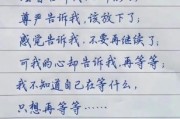 尊严告诉我,该放下了;
感觉告诉我,不要再继续了;
可我的心却告诉我,再等等;
我不知道自己在等什么,
只想再等等……